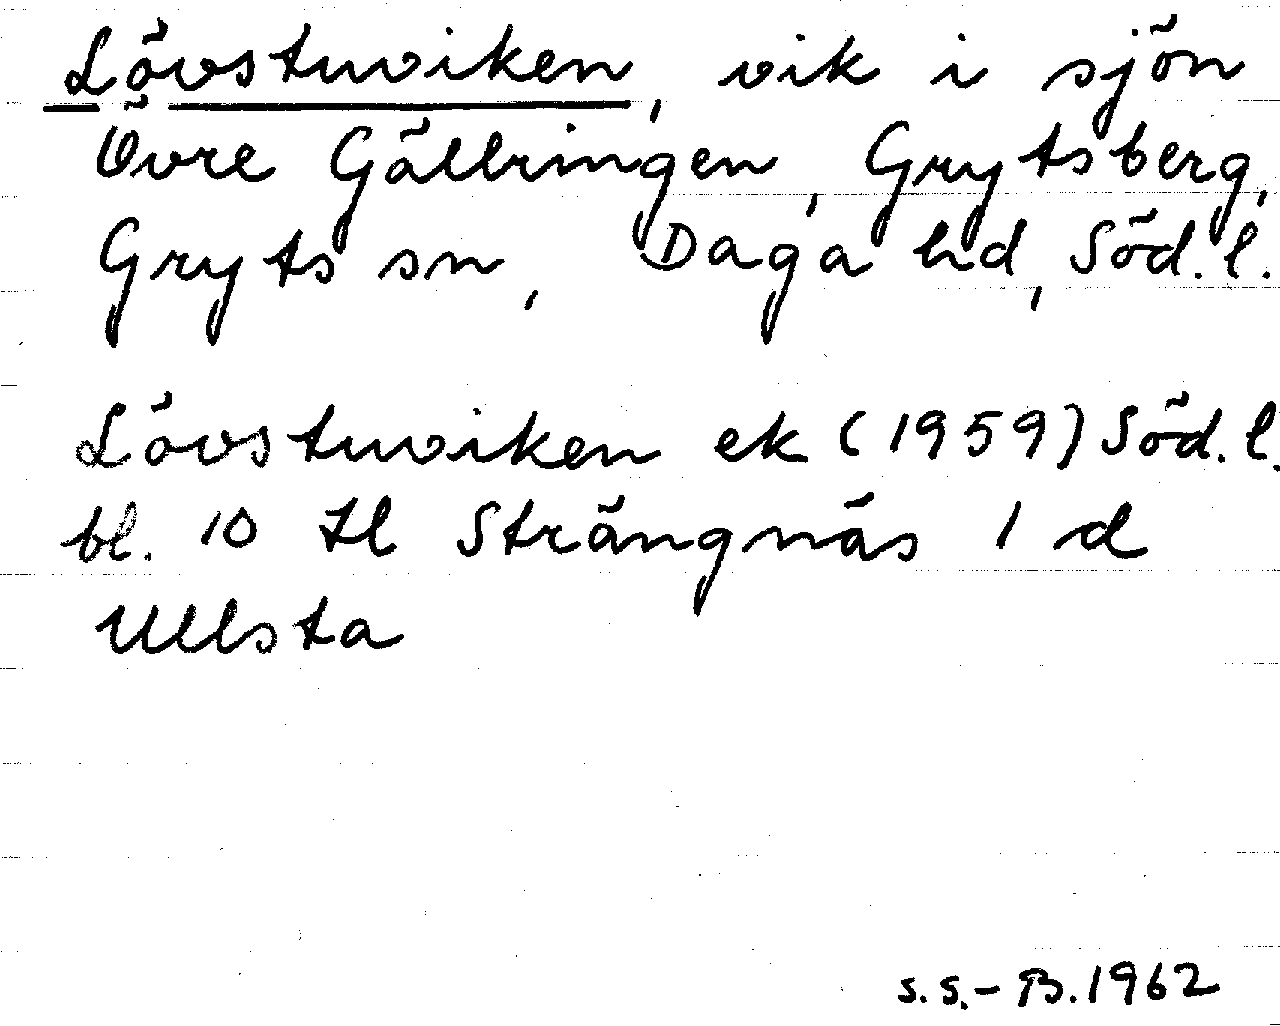 Lövstuviken, vik i sjön
Övre Gällringen, Grytsberg,
Gryts sn, Daga hd, Söd. l.
Lövstuviken ek (1959) Söd. l.
bl. 10 Hl Strängnäs 1 d
Ullsta
s. s. - B. 1962